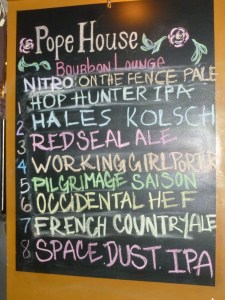 Pope House
Bourbon Lounge
NITRO: ON THE FENCE PALE
1 HOP HUNTER IPA
2 HALES KOLSCH
3 RED SEAL ALE
4 WORKING GIRL PORTER
5 PILGRIMAGE SAISON
6 OCCIDENTAL HEF
7 FRENCH COUNTRY ALE
8 SPACE DUST. IPA